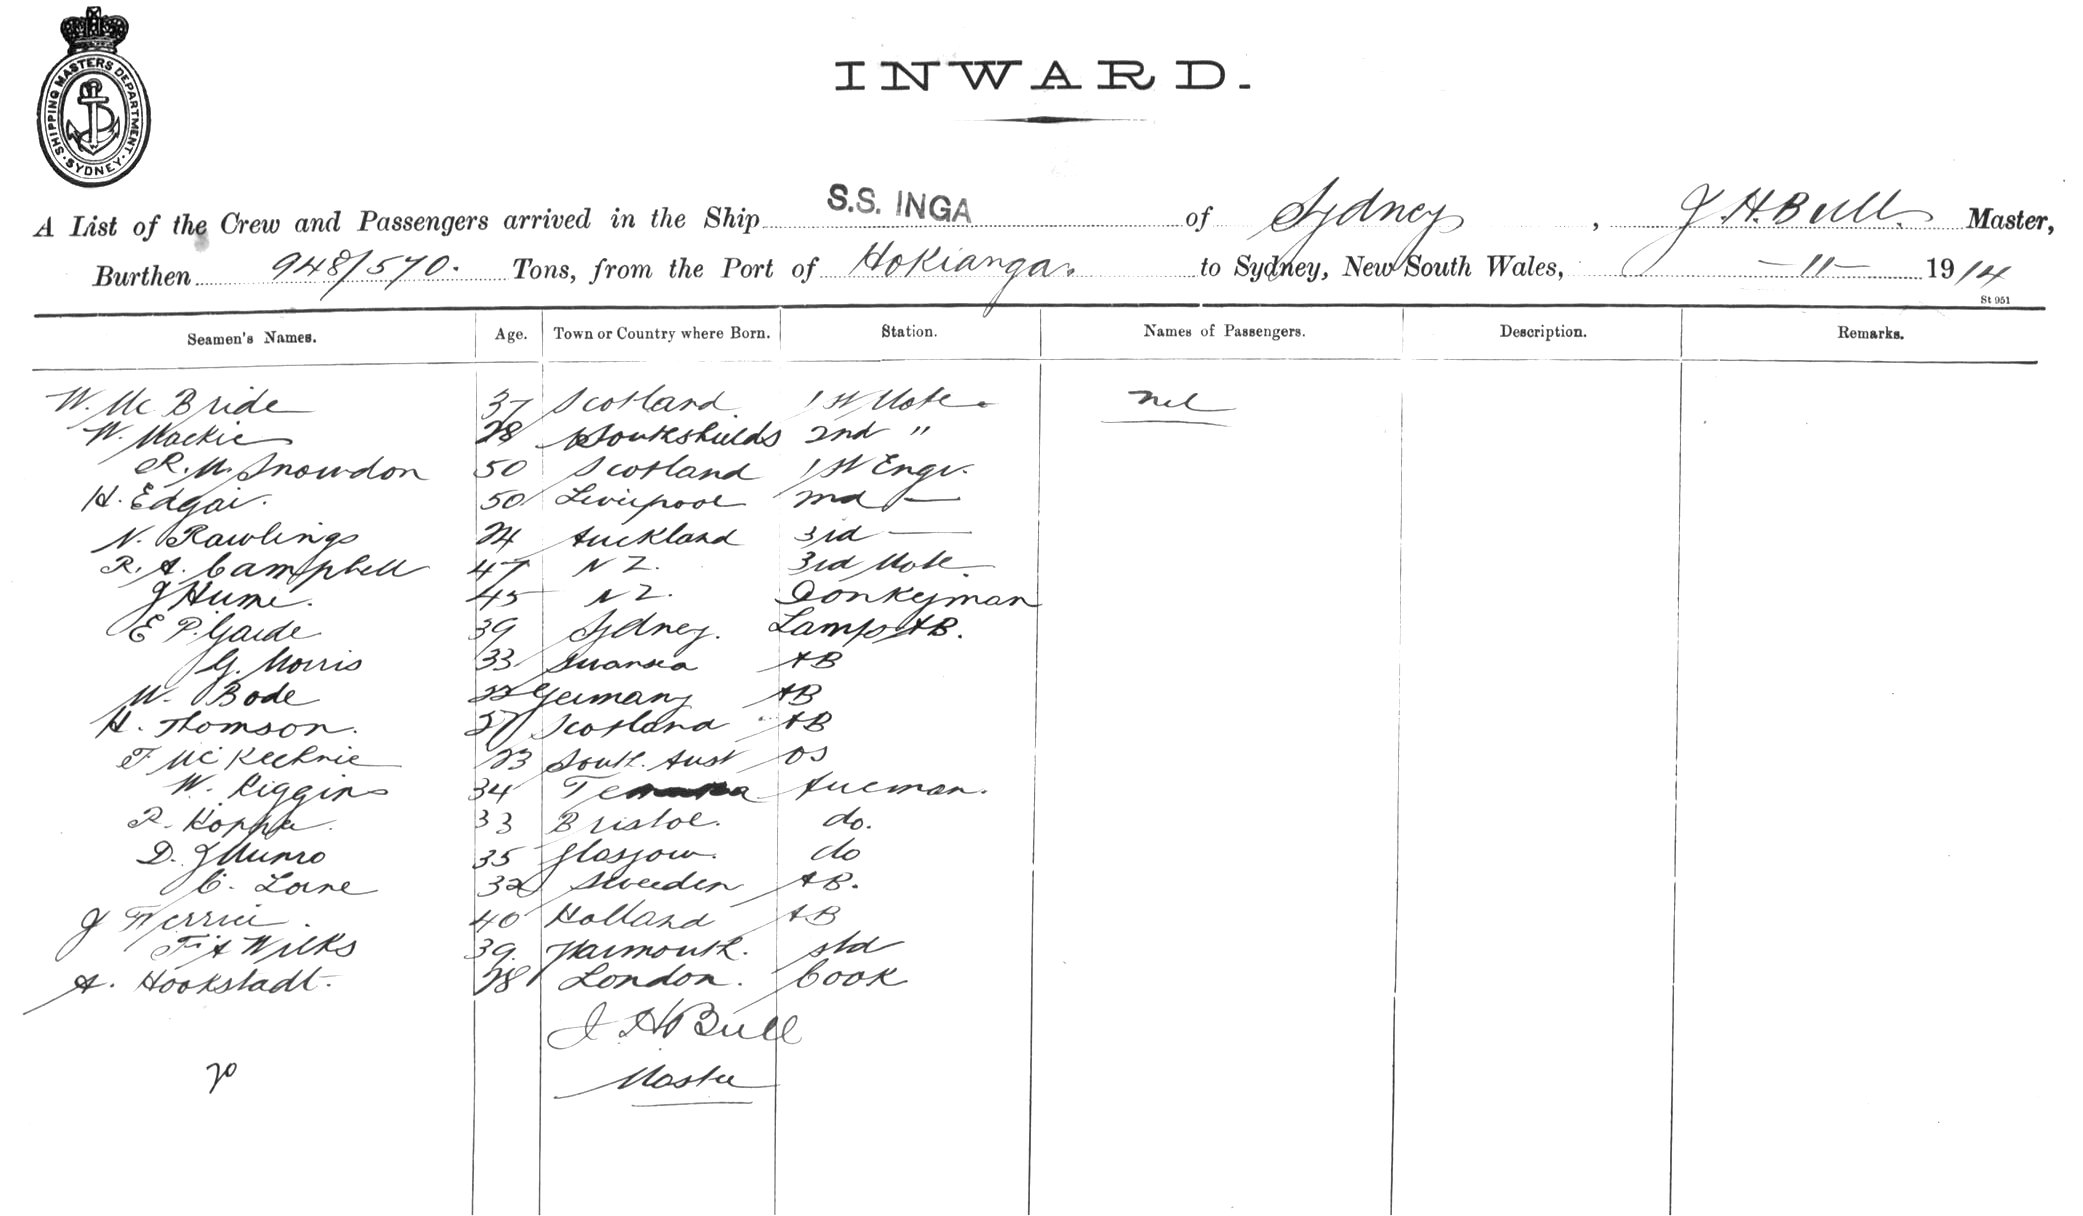 SHIPPING MASTERS DEPARTMENT
SYDNEY
INWARD.
A List of the Crew and Passengers arrived in the Ship S.S. INGA of Sydney, J. H. Bull. Master,
Burthen 948/570. Tons, from the Port of Hokianga. to Sydney, New South Wales, -11- 1914
St 951
Seamen's Names. Age. Town or Country where Born. Station. Names of Passengers. Description. Remarks.
W. Mc Bride 37 Scotland 1st Mate nil
W. Mackie 28 Southshields 2nd "
R. M. Snowdon 50 Scotland 1st Engr.
H. Edgar. 50 Liverpool 2nd —
N. Rawlings 24 Auckland 3rd —
R. A. Campbell 47 NZ. 3rd Mate.
J Hume. 45 NZ. Donkeyman
E P. Gaide 39 Sydney. Lamps AB.
G. Morris 33 Swansea AB
W. Bode 22 Germany AB
H. Thomson. 57 Scotland AB
F McKechnie 23 South. Aust OS
W. Riggins 34 Fireman.
P. 33 Bristol. do.
D. J Munro 35 Glasgow. do
C. Lorne 32 Sweeden AB.
J 40 Holland AB
F. A Wilks 39. Yarmouth. std
A. Hookstadt. 28 London. Cook
J H Bull
Master
20